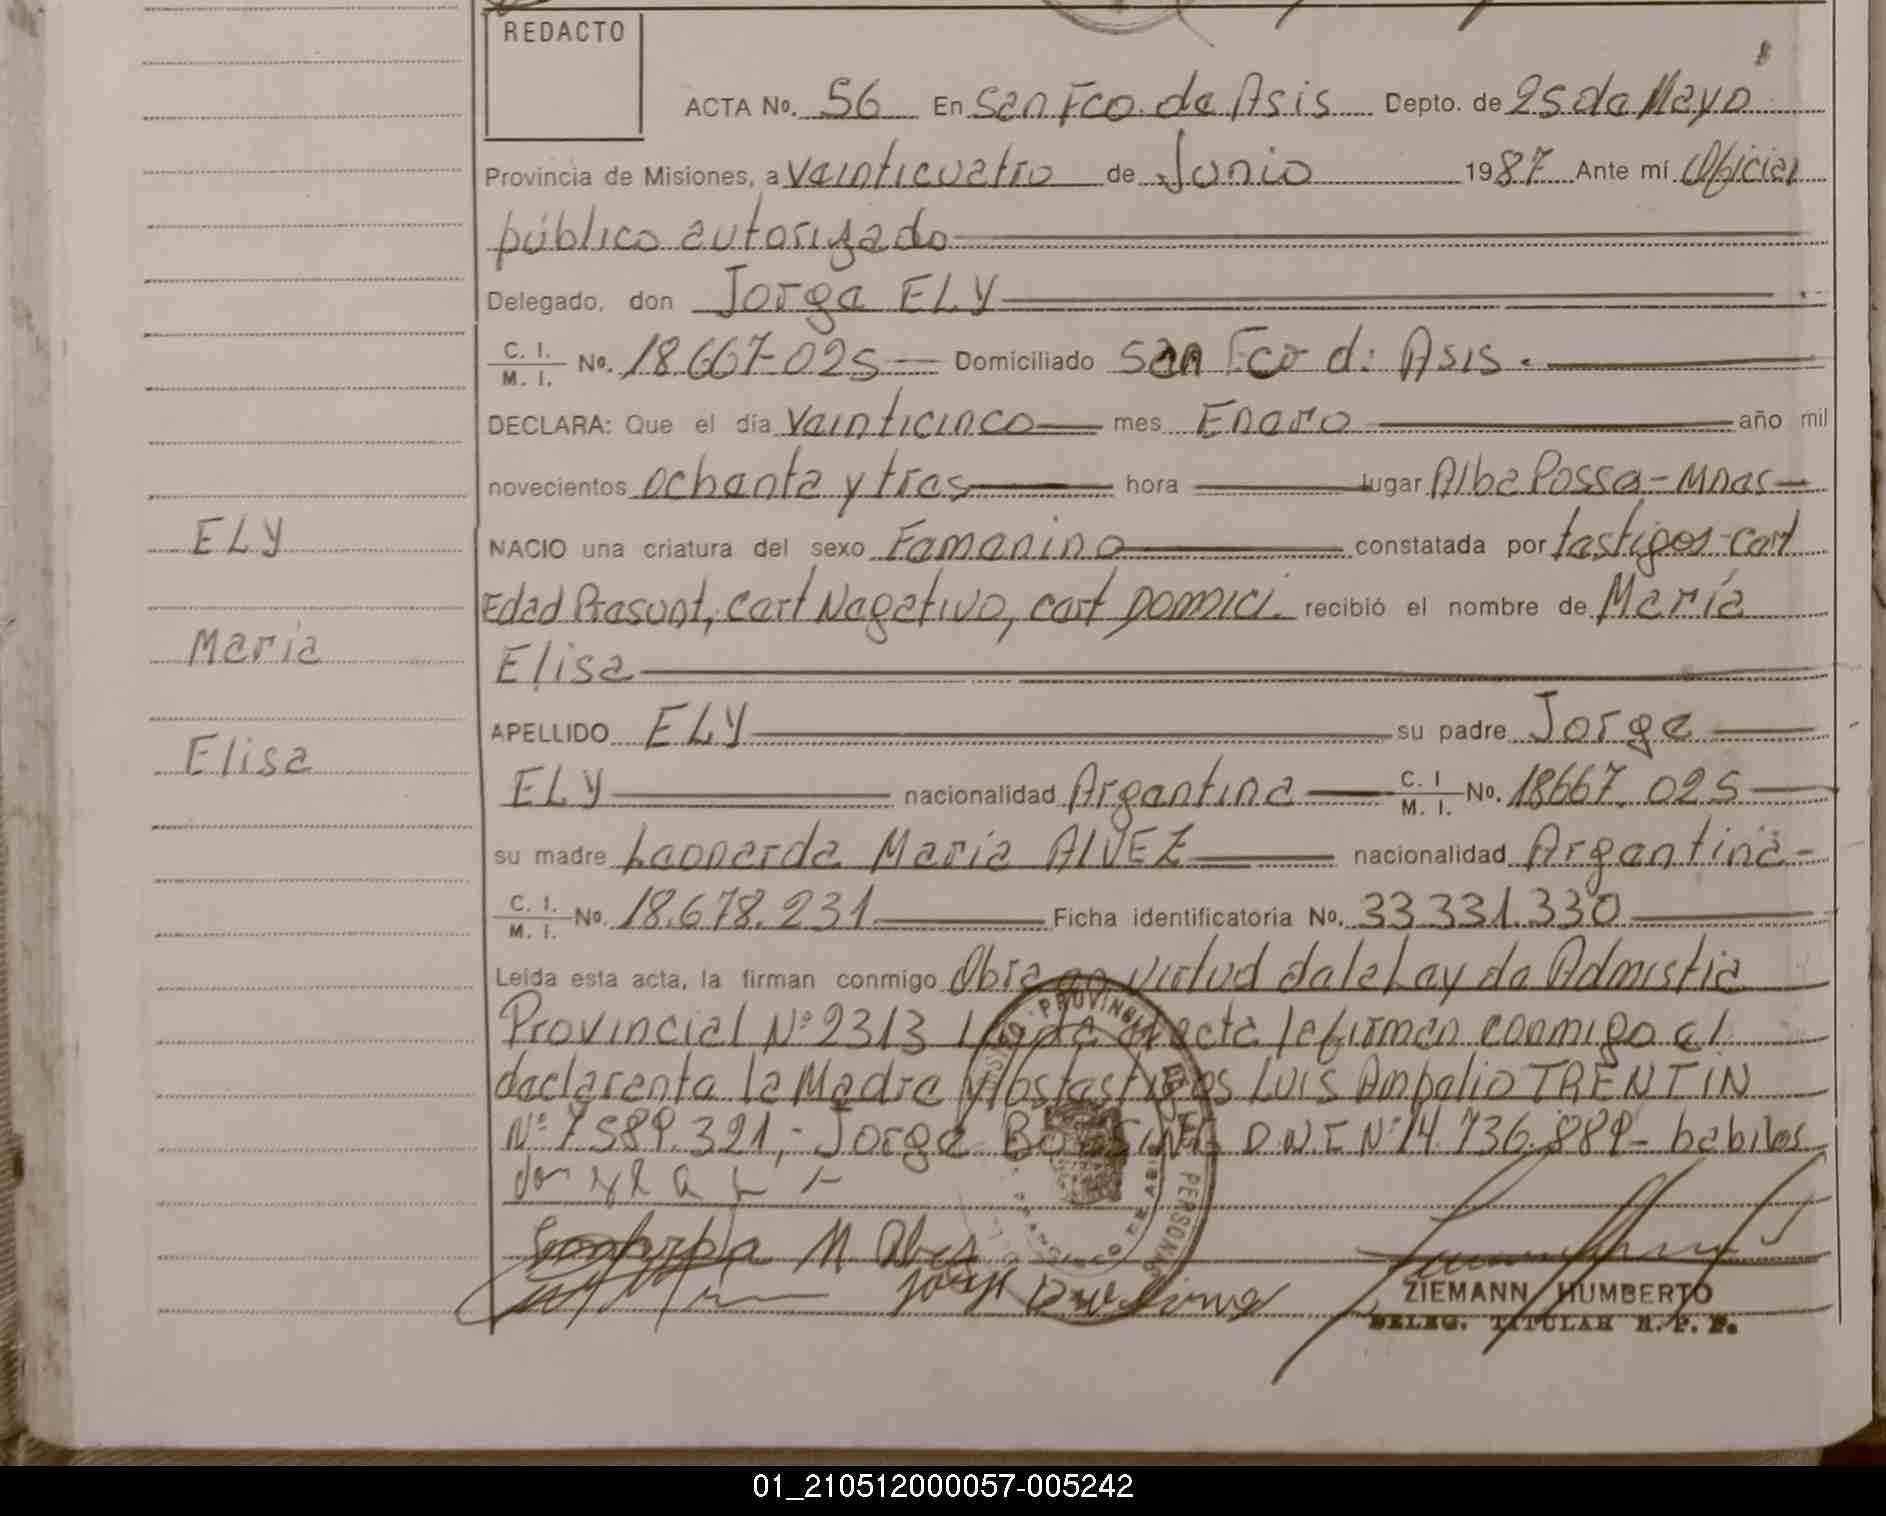 REDACTO
ACTA No. 56 En San Fco. de Asis Depto. de 25 de Mayo
Provincia de Misiones, a veinticuatro de Junio 1987 Ante mí Oficial
público autorizado
Delegado, don Jorge ELY
C. I. / M. I. No. 18.667-025 Domiciliado San Fco d: Asis.
DECLARA: Que el día veinticinco mes Enero año mil
novecientos ochenta y tres hora lugar Alba Posse-Mnes-
ELY
NACIO una criatura del sexo Femenino constatada por testigos-cert
Edad Presunt, cert Negativo, cert Domici. recibió el nombre de María
María
Elisa
APELLIDO ELY su padre Jorge
Elisa
ELY nacionalidad Argentina C. I / M. I. No. 18667.025
su madre Leonarda María ALVEZ nacionalidad Argentina-
C. I. / M. I. No. 18.678.231 Ficha identificatoria No. 33.331.330
Leída esta acta, la firman conmigo Obra en virtud de la Ley de Admistia
Provincial Nº 2313 Leída el acta la firman conmigo el
declarente la Madre y los testigos Luis Ampelio TRENTIN
Nº 7.589.321,- Jorge D.N.I Nº 14.736.889- habiles
ZIEMANN HUMBERTO
DELEG. TITULAR R. P. P.
01_210512000057-005242